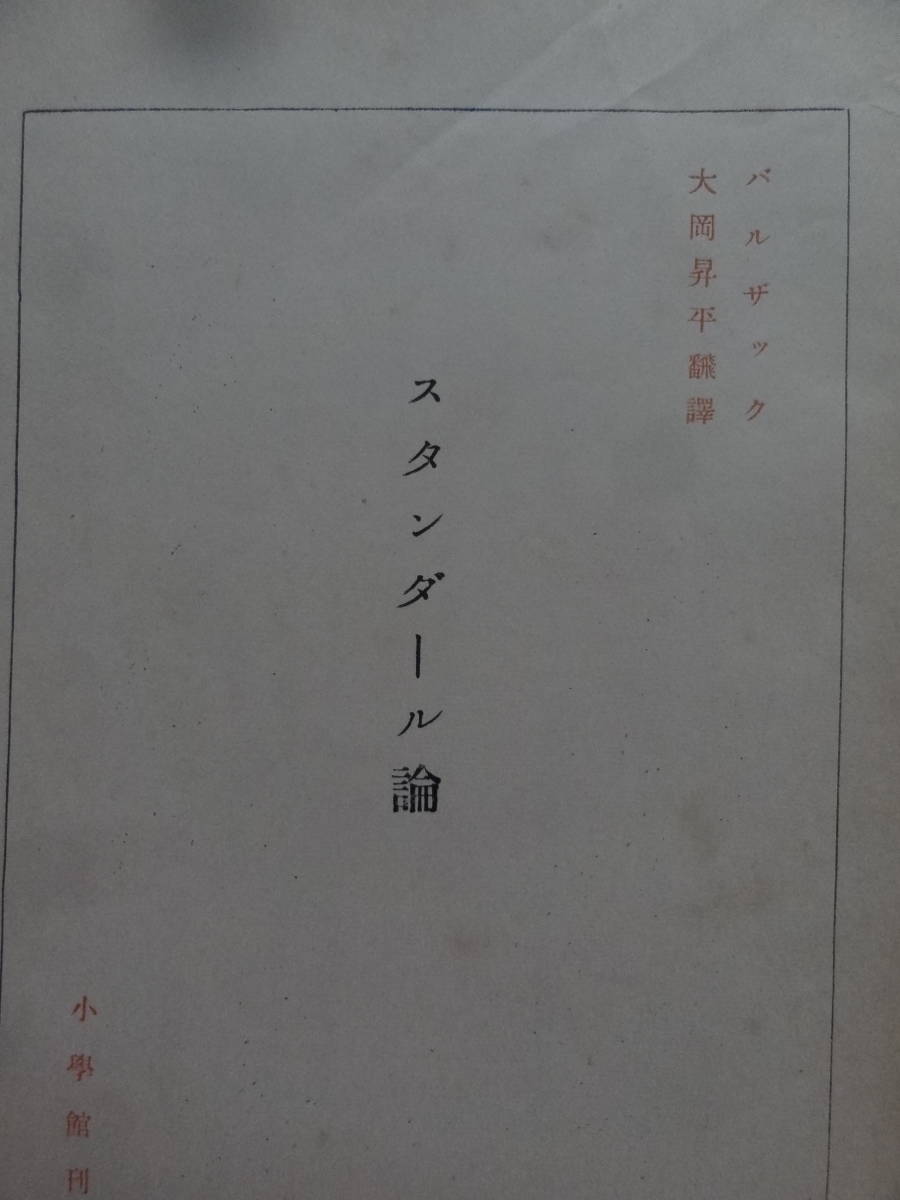 バルザック
大岡昇平飜譯
スタンダール論
小學館刊